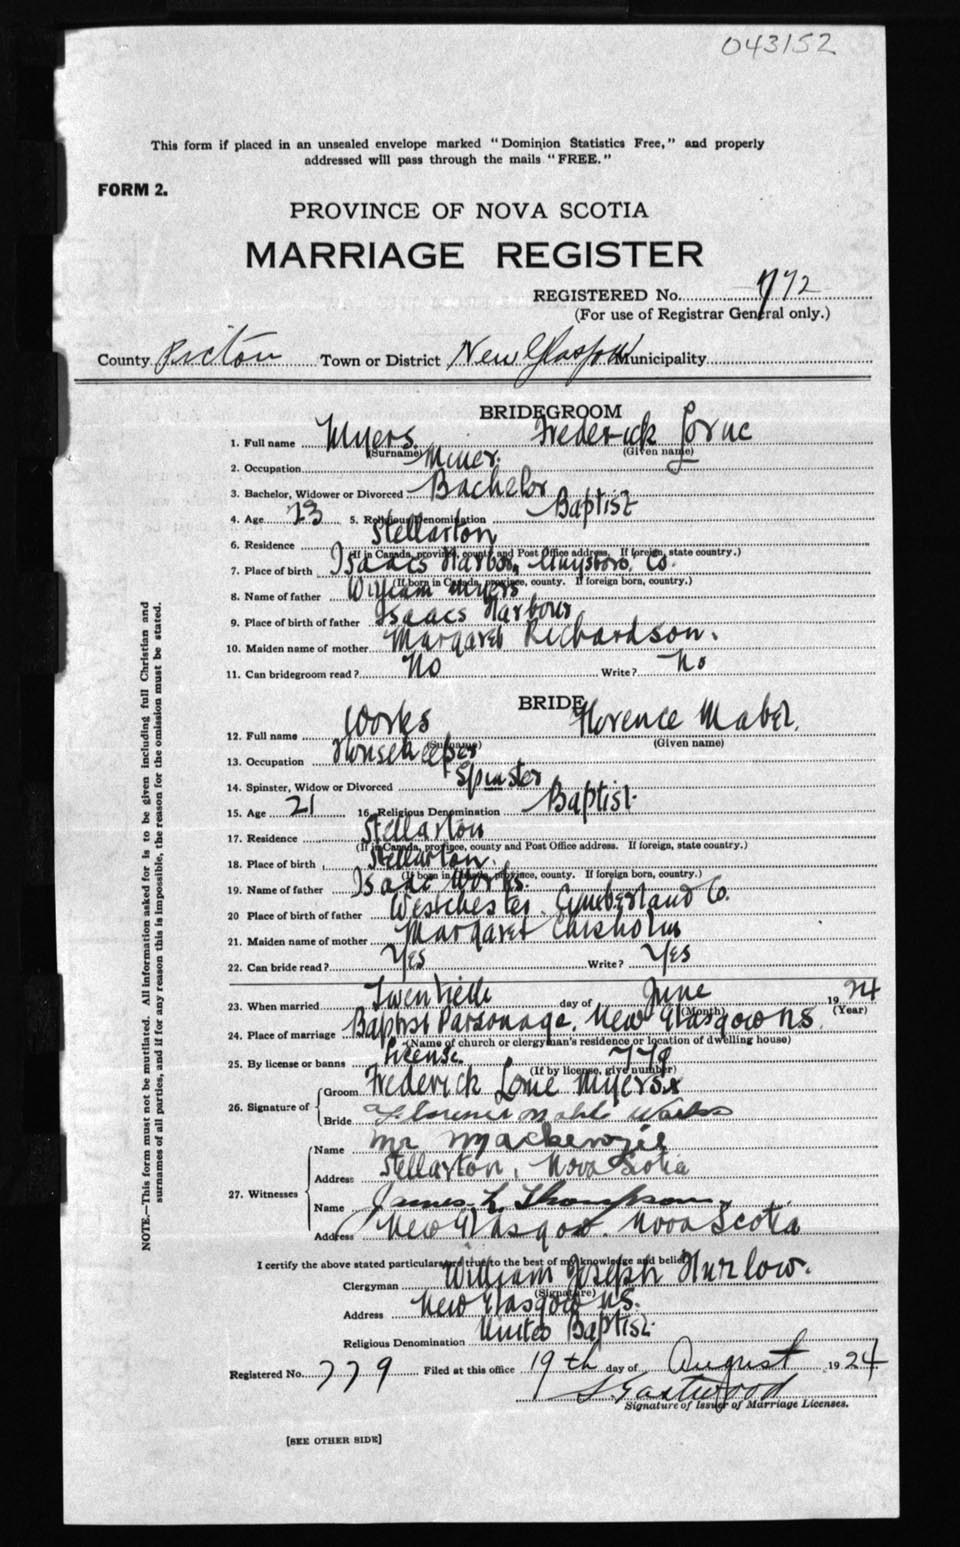 043152
This form if placed in an unsealed envelope marked "Dominion Statistics Free," and properly
addressed will pass through the mails "FREE."
FORM 2.
PROVINCE OF NOVA SCOTIA
MARRIAGE REGISTER
REGISTERED No. 772
(For use of Registrar General only.)
County Pictou Town or District New Glasgow Municipality
BRIDEGROOM
1. Full name Myers Frederick Lorne
(Surname) (Given name)
2. Occupation Miner.
3. Bachelor, Widower or Divorced Bachelor
4. Age 23 5. Religious Denomination Baptist
6. Residence Stellarton
(If in Canada, province, county and Post Office address. If foreign, state country.)
7. Place of birth Isaacs Harbor, Guysboro Co.
(If born in Canada, province, county. If foreign born, country.)
8. Name of father William Myers
9. Place of birth of father Isaacs Harbour
10. Maiden name of mother Margaret Richardson.
11. Can bridegroom read? No Write? No
BRIDE
12. Full name Works Florence Mabel.
(Surname) (Given name)
13. Occupation Housekeeper
14. Spinster, Widow or Divorced Spinster
15. Age 21 16. Religious Denomination Baptist.
17. Residence Stellarton
(If in Canada, province, county and Post Office address. If foreign, state country.)
18. Place of birth Stellarton.
(If born in Canada, province, county. If foreign born, country.)
19. Name of father Isaac Works.
20 Place of birth of father Westchester, Cumberland Co.
21. Maiden name of mother Margaret Chisholm
22. Can bride read? Yes Write? Yes
23. When married Twentieth day of June 1924
(Month) (Year)
24. Place of marriage Baptist Parsonage, New Glasgow NS
(Name of church or clergyman's residence or location of dwelling house)
25. By license or banns License 779
(If by license, give number)
26. Signature of Groom Frederick Lorne Myers x
Bride Florence Mable Works
27. Witnesses Name Mr Mackenzie
Address Stellarton, Nova Scotia
Name James L. Thompson
Address New Glasgow. Nova Scotia
I certify the above stated particulars are true to the best of my knowledge and belief.
Clergyman William Joseph Hurlow.
(Signature)
Address New Glasgow NS.
Religious Denomination United Baptist.
Registered No. 779 Filed at this office 19th day of August 1924
S. Eastwood
Signature of Issuer of Marriage Licenses.
[SEE OTHER SIDE]
NOTE.—This form must not be mutilated. All information asked for is to be given including full Christian and
surnames of all parties, and if for any reason this is impossible, the reason for the omission must be stated.